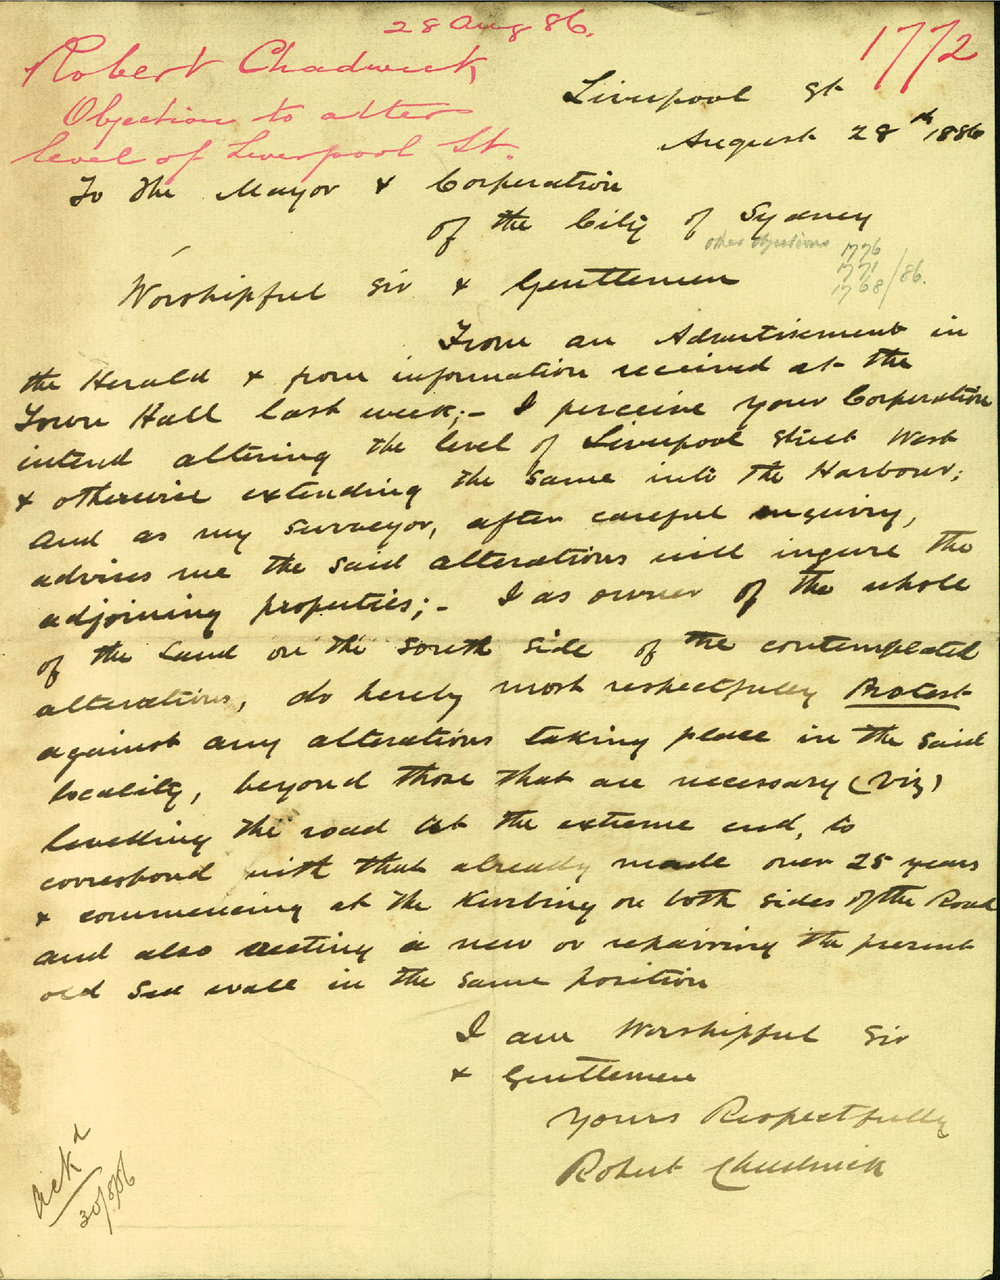 28 Aug 86.
1772
Robert Chadwick
Objection to alter
level of Liverpool St.
Liverpool St
August 28th 1886
To the Mayor & Corporation
of the City of Sydney
other objections 1776
1771
1768/86.
Worshipful Sir & Gentlemen
From an Advertisement in
the Herald & from information received at the
Town Hall last week;- I perceive your Corporation
intend altering the level of Liverpool Street West
& otherwise extending the same into the Harbour;
and as my surveyor, after careful enquiry,
advises me the said alterations will injure the
adjoining properties;- I as owner of the whole
of the Land on the South Side of the contemplated
alterations, do hereby most respectfully Protest
against any alterations taking place in the said
locality, beyond those that are necessary (Viz)
levelling the road at the extreme end, to
correspond with that already made over 25 years
& commencing at the Kurbing on both sides of the Road
and also erecting a new or repairing the present
old Sea wall in the same position
I am Worshipful Sir
& Gentlemen
Yours Respectfully
Robert Chadwick
Ackd
30/8/86